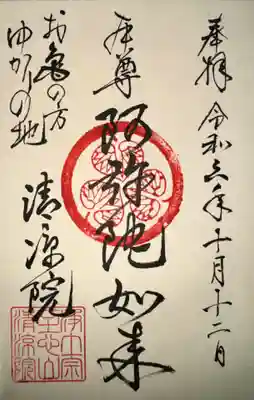 奉拝 令和六年十月十二日
本尊 阿弥陀如来
お亀の方
ゆかりの地
清涼院
浄土宗
清涼院